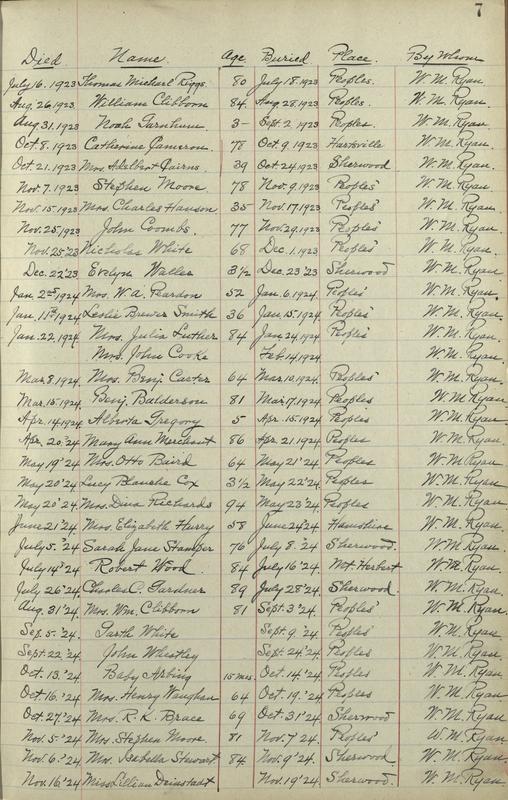 7
Died Name. Age. Buried Place. By Whom
July 16. 1923 Thomas Michael Riggs. 80 July 18. 1923 Peoples. W. M. Ryan.
Aug. 26. 1923 William Clibborn 84. Aug 28. 1923 Peoples. W. M. Ryan.
Aug 31. 1923 Noah 3- Sept. 2 1923 Peoples. W. M. Ryan.
Oct. 8. 1923 Catherine Cameron. 78 Oct. 9. 1923 Hartsville W. M. Ryan.
Oct. 21. 1923 Mrs. Adelbert Cairns. 39 Oct. 24. 1923 Sherwood W. M. Ryan.
Nov. 7. 1923 Stephen Moore 78 Nov. 9. 1923 Peoples' W. M. Ryan.
Nov. 15. 1923 Mrs. Charles Hanson 35 Nov. 17. 1923 Peoples' W. M. Ryan.
Nov. 25. 1923 John Coombs. 77 Nov. 29. 1923 Peoples' W. M. Ryan.
Nov. 25 '23 Nicholas White 68 Dec. 1. 1923 Peoples' W. M. Ryan.
Dec. 22 '23 Evelyn Waller 3½ Dec. 23 '23 Sherwood W. M. Ryan.
Jan 2nd 1924 Mrs. W. A. Reardon 52 Jan. 6. 1924 Peoples' W. M. Ryan.
Jan. 11th 1924 Leslie Brewer Smith 36 Jan. 15. 1924 Peoples' W. M. Ryan.
Jan. 22. 1924 Mrs. Julia Luther 84 Jan 24. 1924 Peoples' W. M. Ryan.
Mrs. John Cooke Feb. 14. 1924 W. M. Ryan.
Mar. 8. 1924 Mrs. Benj. Carter 64 Mar. 10. 1924 Peoples' W. M. Ryan.
Mar. 15. 1924 Benj. Balderson 81 Mar. 17. 1924 Peoples W. M. Ryan
Apr. 14 1924 Alberta Gregory 5 Apr. 15. 1924 Peoples W. M. Ryan
Apr. 20. '24 Mary Ann Merchant 86 Apr. 21. 1924 Peoples W. M. Ryan.
May 19' '24 Mrs. Otto Baird 64 May 21' '24 Peoples W. M. Ryan.
May 20' '24 Lucy Blanche Cox 3½ May 22' '24 Peoples W. M. Ryan.
May 20' '24 Mrs. Dina Richards 94 May 23 '24 Peoples W. M. Ryan.
June 21 '24 Mrs. Elizabeth Hurry 58 June 24 '24 W. M. Ryan.
July 5. '24 Sarah Jane Stamper 76 July 8. '24 Sherwood. W. M. Ryan.
July 14 '24 Robert Wood 84 July 16 '24 Mt. Herbert W. M. Ryan.
July 26 '24 Charles C. Gardner 89 July 28 '24 Sherwood. W. M. Ryan.
Aug. 31 '24 Mrs. Wm. Clibborn 81 Sept. 3 '24 Peoples' W. M. Ryan.
Sep. 5. '24. Garth White Sept. 9. '24 Peoples' W. M. Ryan.
Sept. 22 '24 John Wheatley Sept. 24 '24 Peoples W. M. Ryan.
Oct. 13. '24 Baby Arbing 15 mos. Oct. 14' '24 Peoples W. M. Ryan.
Oct 16. '24 Mrs. Henry Waughan 64 Oct. 19. '24 Peoples W. M. Ryan.
Oct. 27. '24 Mrs. R. K. Brace 69 Oct. 31' '24 Sherwood W. M. Ryan.
Nov. 5' '24 Mrs. Stephen Moore 81 Nov. 7' '24 Peoples' W. M. Ryan
Nov. 6. '24 Mrs. Isabella Stewart 84 Nov. 9' '24. Sherwood W. M. Ryan.
Nov. 16 '24 Miss Lillian Nov. 19 '24 Sherwood. W. M. Ryan.